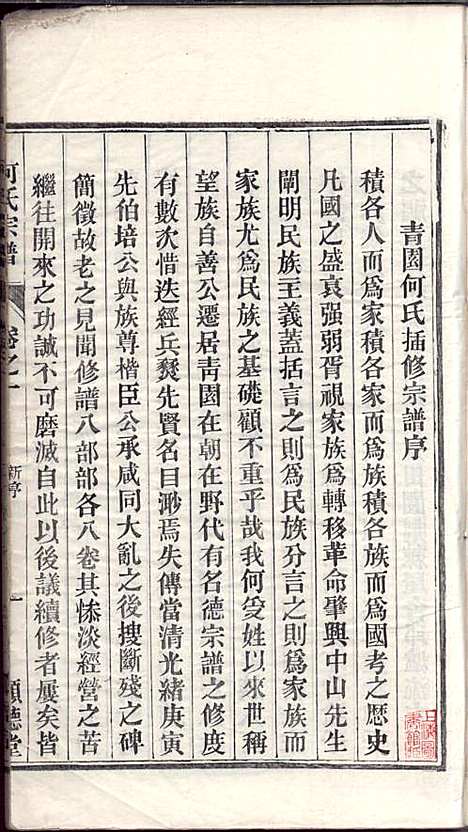 青園何氏插修宗譜序
積各人而爲家積各家而爲族積各族爲國考之歷史
凡國之盛衰强弱胥視家族爲轉移革命肇興中山先生
闡明民族主義蓋括言之則爲民族分言之則爲家族而
家族尤爲民族之基礎顧不重乎哉我何受姓以來世稱
望族自善公遷居靑園在朝在野代有名德宗譜之修度
有數次惜迭經兵燹先賢名目渺焉失傳當清光緒庚寅
先伯培公與族尊楷臣公承咸同大亂之後搜斷殘之碑
簡徵故老之見聞修譜八部部各八卷其慘淡經營之苦
繼往開來之功誠不可磨滅自此以後議續修者屢矣皆
何氏宗譜
卷之一
新序
一
順德堂